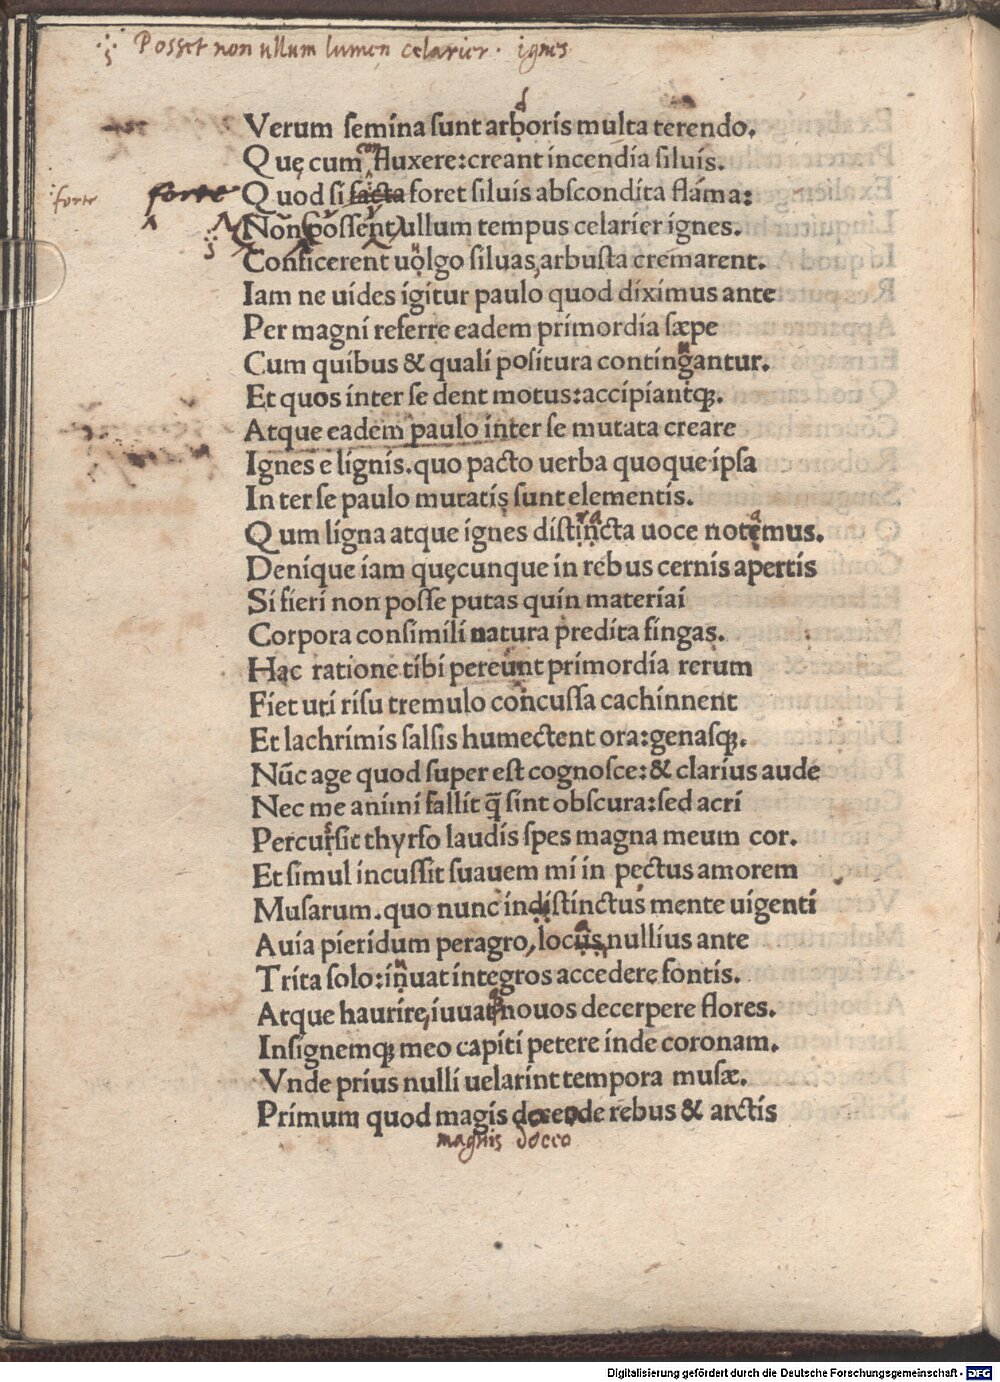 Posset non ullum lumen celarier · ignes
Verum semina sunt arboris multa terendo.
d
Quę cum fluxere: creant incendia siluis.
con
forte forte Quod si facta foret siluis abscondita flāma:
Noñ possent ullum tempus celarier ignes.
Conficerent uolgo siluas, arbusta cremarent.
Iam ne uides igitur paulo quod diximus ante
Per magni referre eadem primordia sæpe
Cum quibus & quali positura contingantur.
Et quos inter se dent motus: accipiantq;.
Atque eadem paulo inter se mutata creare
Ignes e lignis. quo pacto uerba quoque ipsa
In ter se paulo mutatis sunt elementis.
Qum ligna atque ignes distincta uoce notemus.
a
Denique iam quęcunque in rebus cernis apertis
Si fieri non posse putas quin materiai
Corpora consimili natura predita fingas.
Hac ratione tibi pereunt primordia rerum
Fiet uti risu tremulo concussa cachinnent
Et lachrimis salsis humectent ora: genasq;.
Nūc age quod super est cognosce: & clarius aude
Nec me animi fallit q̄ sint obscura: sed acri
Percursit thyrso laudis spes magna meum cor.
Et simul incussit suauem mi in pectus amorem
Musarum. quo nunc indistinctus mente uigenti
Auia pieridum peragro, lociis nullius ante
Trita solo: inuat integros accedere fontis.
Atque haurire, iuuat nouos decerpere flores.
Insignemq; meo capiti petere inde coronam.
Vnde prius nulli uelarint tempora musæ.
Primum quod magis docende rebus & arctis
magnis doceo
Digitalisierung gefördert durch die Deutsche Forschungsgemeinschaft - DFG